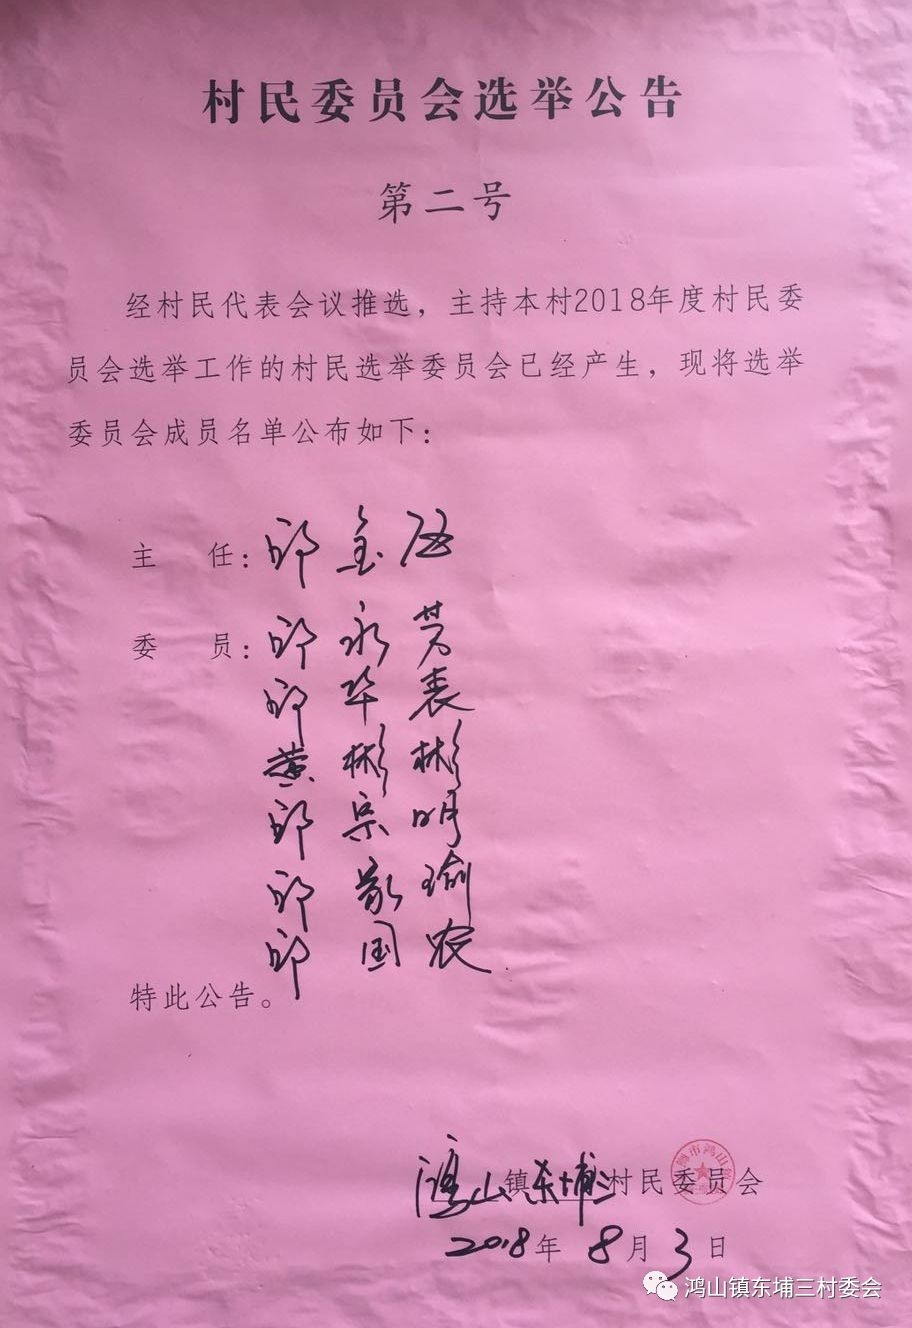 村民委员会选举公告
第二号
经村民代表会议推选，主持本村2018年度村民委
员会选举工作的村民选举委员会已经产生，现将选举
委员会成员名单公布如下：
主　任：邱金
委　员：邱永芳
邱华表
黄彬彬
邱宗明
邱家瑜
邱国农
特此公告。
鸿山镇东埔三村民委员会
2018年8月3日
鸿山镇东埔三村委会